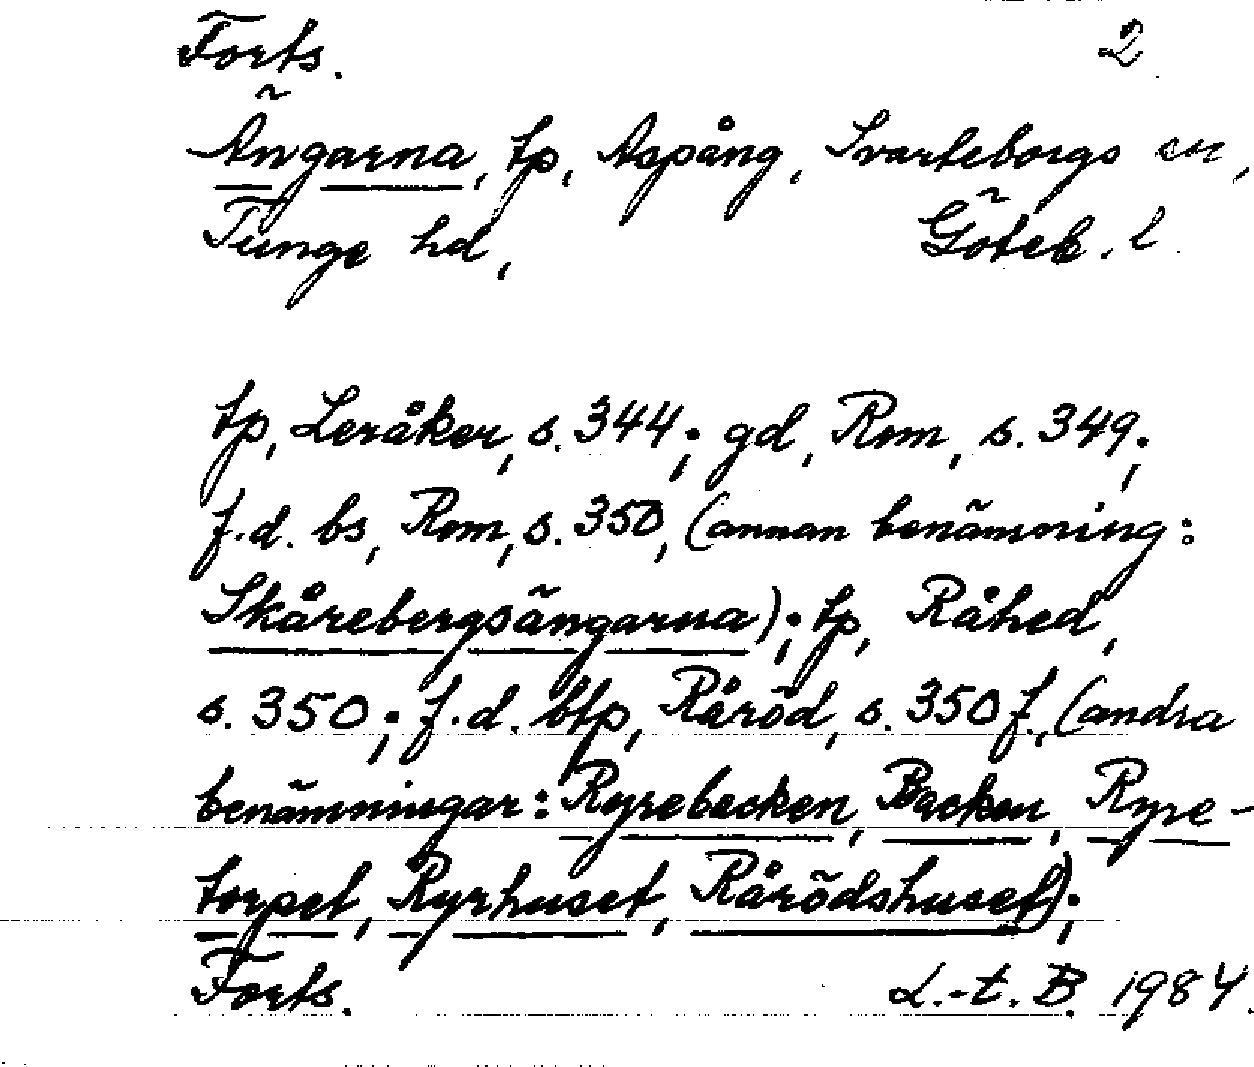 Forts. 2
Ängarna, tp, Aspång, Svarteborgs sn,
Tunge hd, Göteb. l.
tp, Leråker, s. 344; gd, Rom, s. 349;
f.d. bs, Rom, s. 350, (annan benämning:
Skårebergsängarna); tp, Råhed,
s. 350; f.d. btp, Råröd, s. 350 f., (andra
benämningar: Ryrebacken, Backen, Ryre-
torpet, Ryrhuset, Rårödshuset);
Forts. L.-t. B. 1984.